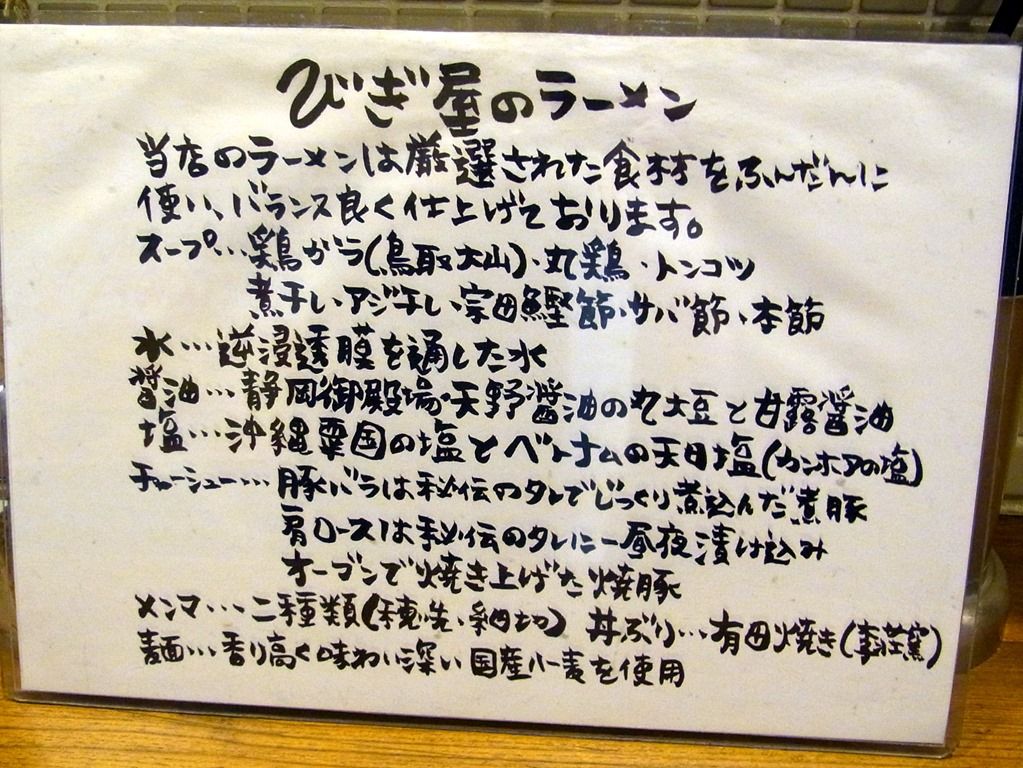 びぎ屋のラーメン
当店のラーメンは厳選された食材をふんだんに
使い、バランス良く仕上げております。
スープ…鶏ガラ(鳥取大山)・丸鶏・トンコツ
煮干し・アジ干し・宗田鰹節・サバ節・本節
水…逆浸透膜を通した水
醤油…静岡御殿場・天野醤油の丸大豆と甘露醤油
塩…沖縄粟国の塩とベトナムの天日塩(カンホアの塩)
チャーシュー…豚バラは秘伝のタレでじっくり煮込んだ煮豚
肩ロースは秘伝のタレに一昼夜漬け込み
オーブンで焼き上げた焼豚
メンマ…二種類(穂先・細切) 丼ぶり…有田焼き(李荘窯)
麺…香り高く味わい深い国産小麦を使用